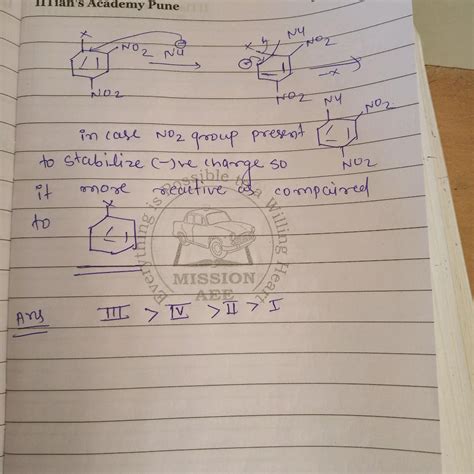 IITian's Academy Pune
X NO2 Nu X Nu NO2 -X
NO2 NO2
Nu NO2
in case NO2 group present
NO2
to stabilize (-)ve charge so
it more reactive as compaired
X
to
Everything is possible to a Willing Heart
MISSION
AEE
Ans III > IV > II > I